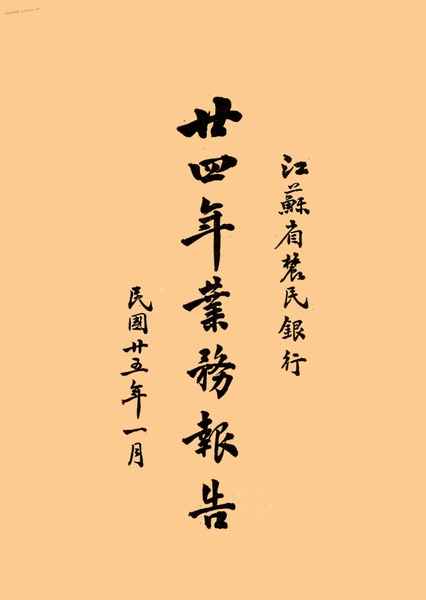 江蘇省農民銀行
廿四年業務報告
民國廿五年一月